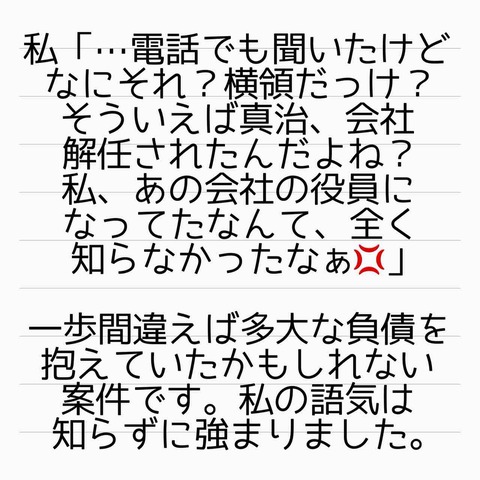 私「…電話でも聞いたけど
なにそれ？横領だっけ？
そういえば真治、会社
解任されたんだよね？
私、あの会社の役員に
なってたなんて、全く
知らなかったなぁ💢」
一歩間違えば多大な負債を
抱えていたかもしれない
案件です。私の語気は
知らずに強まりました。